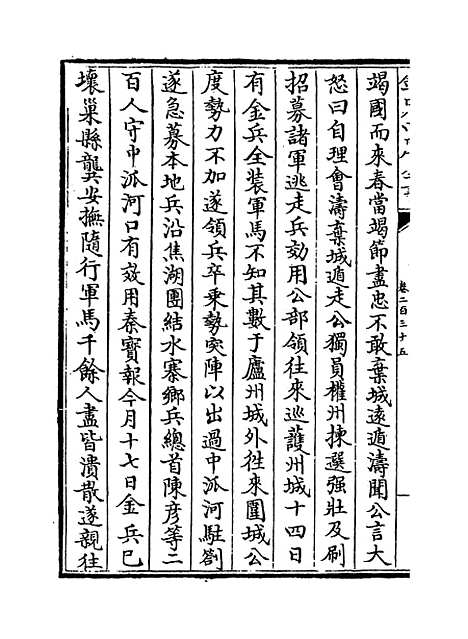 卷二百三十五
竭國而来春當竭節盡忠不敢棄城逺遁濤聞公言大
怒曰自理會濤棄城遁走公獨員權州揀選强壯及刷
招募諸軍逃走兵効用公部領往来巡䕶州城十四日
有金兵全装軍馬不知其數于廬州城外徃来圍城公
度勢力不加遂領兵卒乗勢突陣以出過中派河駐劄
遂急募本地兵沿焦湖團結水寨鄉兵總首陳彦等二
百人守中派河口有效用秦寶報今月十七日金兵已
壊巢縣龔安撫隨行軍馬千餘人盡皆潰散遂親徃